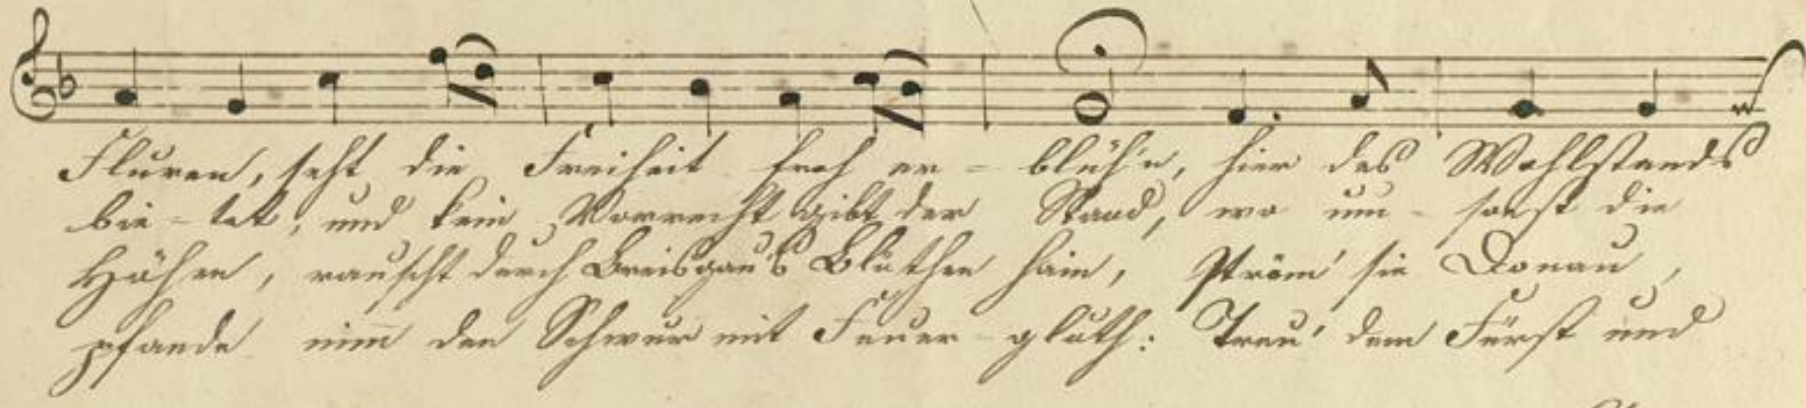 Fluren, seht die Freiheit froh er - blüh'n, hier des Wohlstands
bie - tet, und kein Vorrecht gibt der Stand, wo um - sonst die
Höhen, rauscht durch Breisgau's Blüthen hain, Ström' sie Donau,
pfande nim̄ den Schwur mit Feuer - gluth: Treu' dem Fürst und